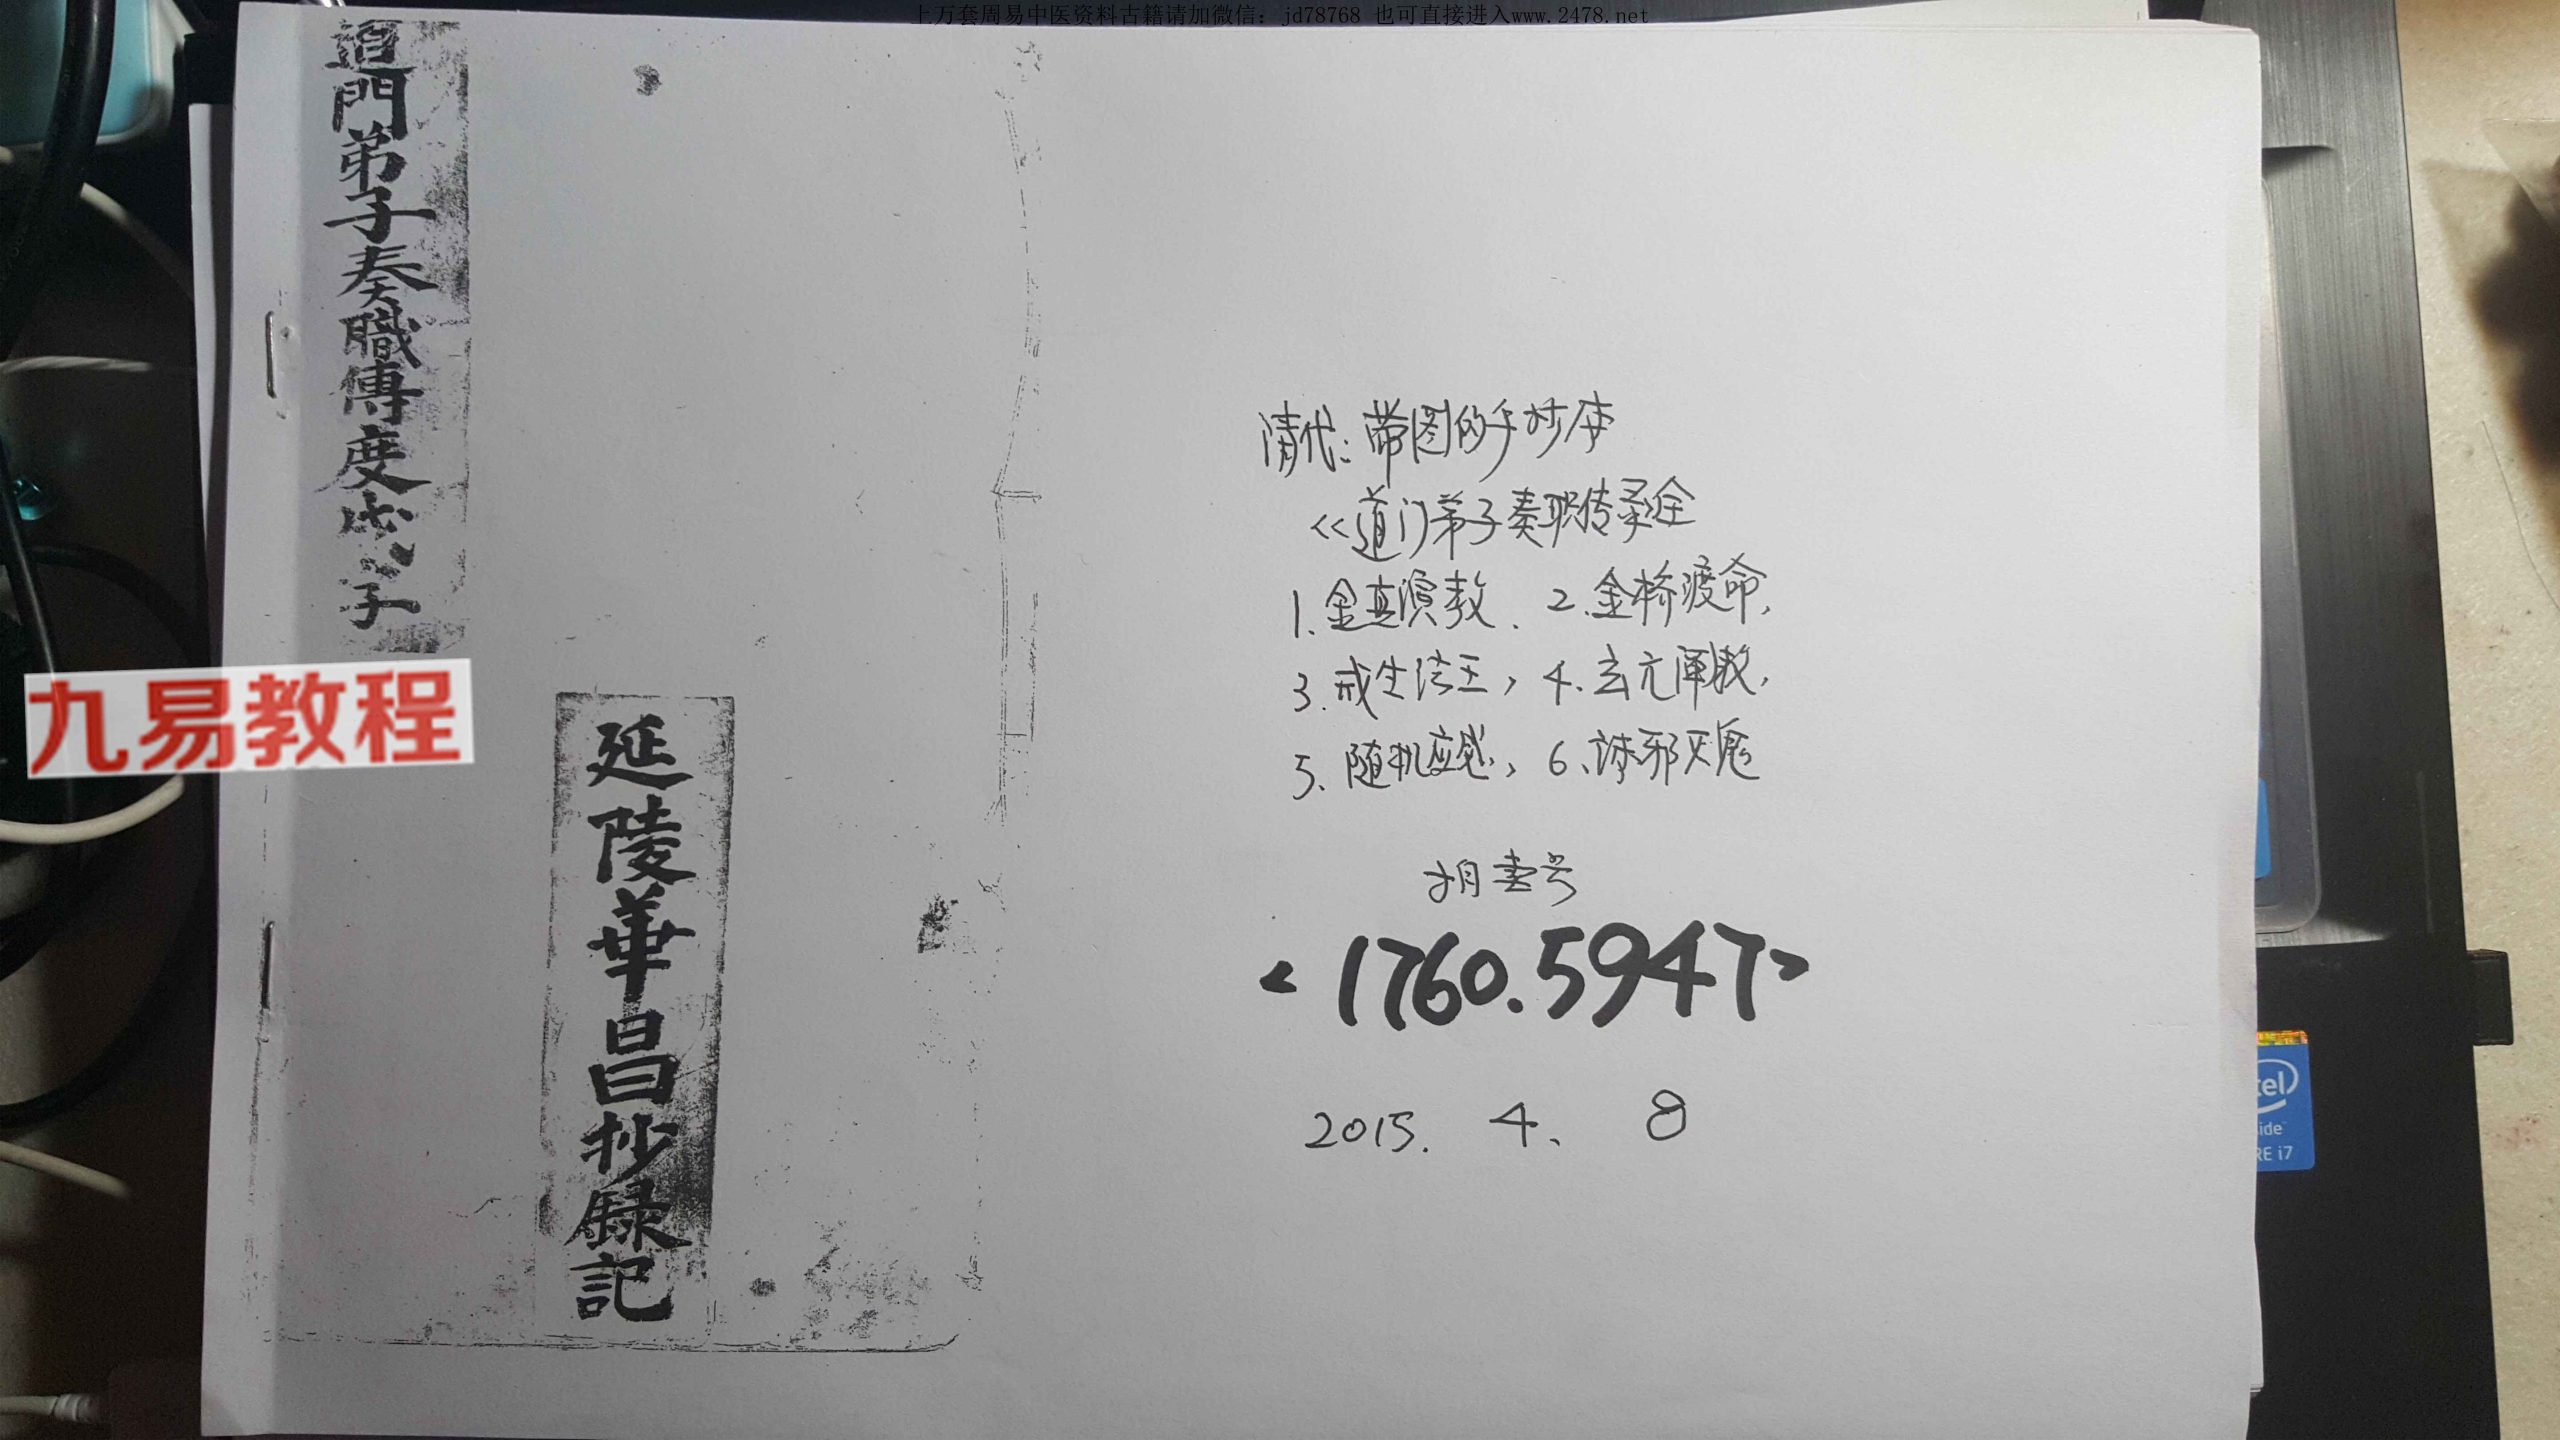 上万套周易中医资料古籍请加微信：jd78768 也可直接进入www.2478.net
道門弟子奏職傳度式子
延陵華昌抄錄記
九易教程
清代：带图的手抄本
<<道门弟子奏职传录全
1、金真演教、2、金桥渡命,
3、戒生法王, 4、玄亢阐教,
5、随机应感, 6、诛邪灭鬼
拍卖号
<1760.5947>
2015. 4、8
intel
side
RE i7